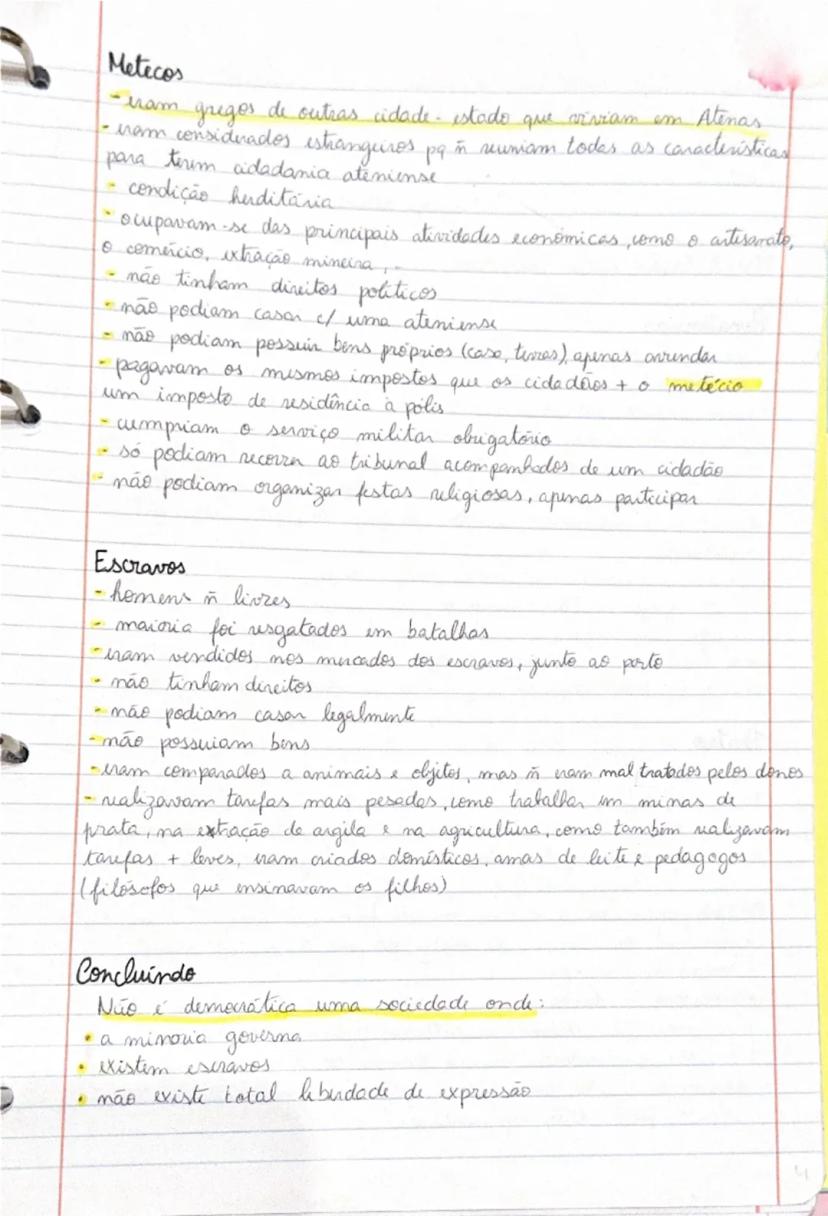 Metecos
- eram gregos de outras cidade-estado que viviam em Atenas
- eram considerados estrangeiros pq ñ reuniam todas as características
para terem cidadania ateniense
- condição herditária
- ocupavam-se das principais atividades económicas, como o artesanato,
o comércio, extração mineira, ..
- não tinham direitos políticos
- não podiam casar c/ uma ateniense
- não podiam possuir bens próprios (casa, terras), apenas arrendar
- pagavam os mesmos impostos que os cidadãos + o metécio
um imposto de residência à pólis
- cumpriam o serviço militar obrigatório
- só podiam recorrer ao tribunal acompanhados de um cidadão
- não podiam organizar festas religiosas, apenas participar
Escravos
- homens ñ livres
- maioria foi resgatados em batalhas
- eram vendidos nos mercados dos escravos, junto ao porto
- não tinham direitos
- não podiam casar legalmente
- não possuiam bens
- eram comparados a animais e objetos, mas ñ eram mal tratados pelos donos
- realizavam tarefas mais pesadas, como trabalhar em minas de
prata, na extração de argila e na agricultura, como também realizavam
tarefas + leves, eram criados domésticos, amas de leite e pedagogos
(filósofos que ensinavam os filhos)
Concluíndo
Não é democrática uma sociedade onde:
• a minoria governa
• existem escravos
• não existe total liberdade de expressão
4